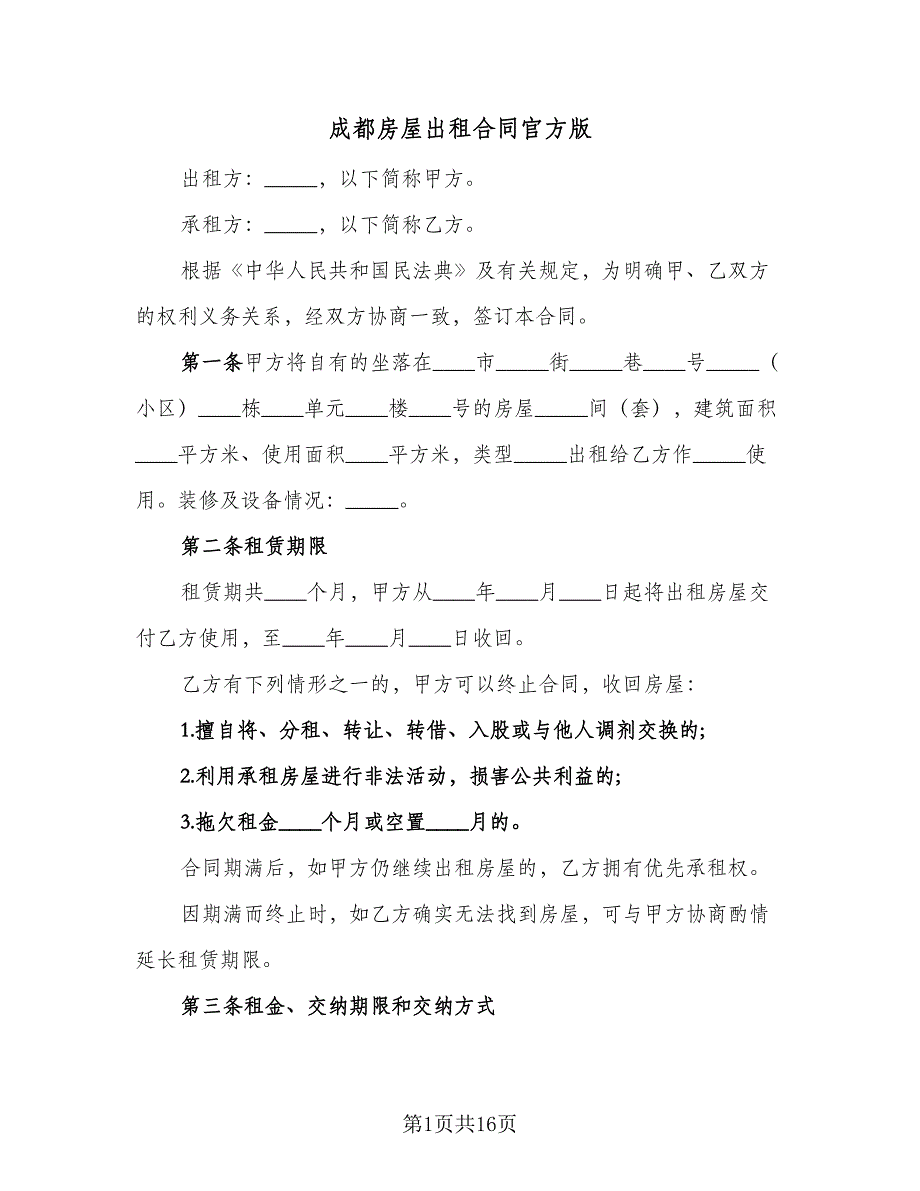 成都房屋出租合同官方版
出租方：_____，以下简称甲方。
承租方：_____，以下简称乙方。
根据《中华人民共和国民法典》及有关规定，为明确甲、乙双方
的权利义务关系，经双方协商一致，签订本合同。
第一条甲方将自有的坐落在____市_____街_____巷____号_____（
小区）____栋____单元____楼____号的房屋_____间（套），建筑面积
____平方米、使用面积____平方米，类型_____出租给乙方作_____使
用。装修及设备情况：_____。
第二条租赁期限
租赁期共____个月，甲方从____年____月____日起将出租房屋交
付乙方使用，至____年____月____日收回。
乙方有下列情形之一的，甲方可以终止合同，收回房屋：
1.擅自将、分租、转让、转借、入股或与他人调剂交换的;
2.利用承租房屋进行非法活动，损害公共利益的;
3.拖欠租金____个月或空置____月的。
合同期满后，如甲方仍继续出租房屋的，乙方拥有优先承租权。
因期满而终止时，如乙方确实无法找到房屋，可与甲方协商酌情
延长租赁期限。
第三条租金、交纳期限和交纳方式
第1页共16页